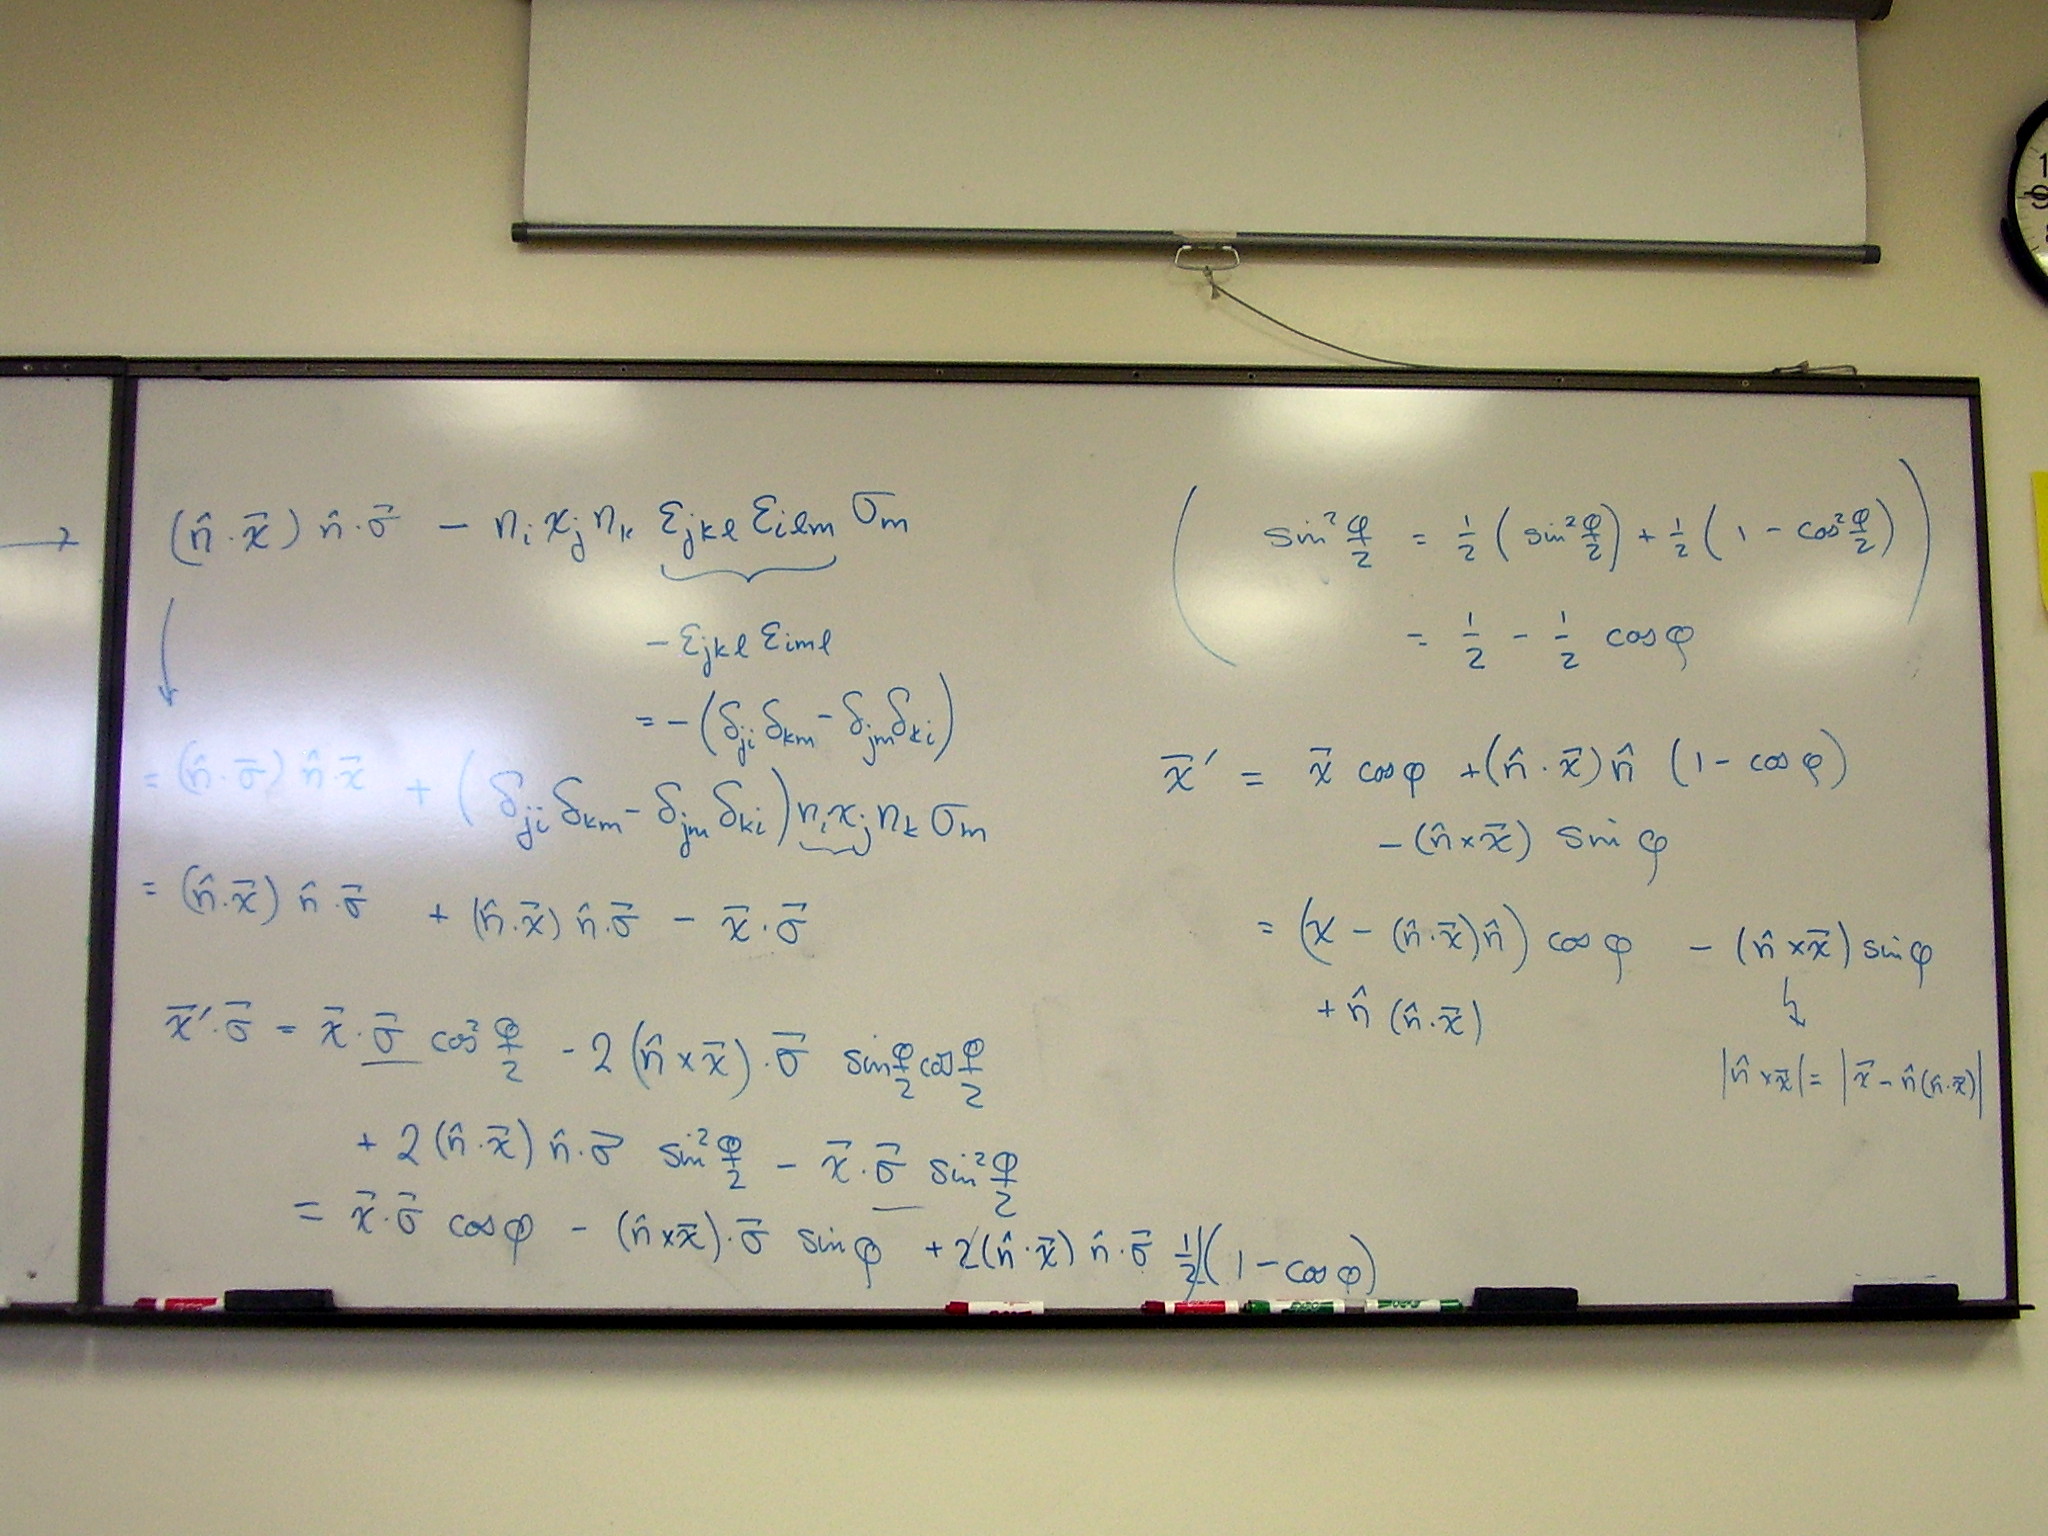 (n̂·x⃗) n̂·σ⃗ − nᵢ xⱼ nₖ εⱼₖₗ εᵢₗₘ σₘ
− εⱼₖₗ εᵢₘₗ
= −(δⱼᵢ δₖₘ − δⱼₘ δₖᵢ)
= (n̂·σ⃗) n̂·x⃗ + (δⱼᵢ δₖₘ − δⱼₘ δₖᵢ) nᵢ xⱼ nₖ σₘ
= (n̂·x⃗) n̂·σ⃗ + (n̂·x⃗) n̂·σ⃗ − x⃗·σ⃗
x⃗′·σ⃗ = x⃗·σ⃗ cos² φ/2 − 2 (n̂ × x⃗)·σ⃗ sin φ/2 cos φ/2
+ 2 (n̂·x⃗) n̂·σ⃗ sin² φ/2 − x⃗·σ⃗ sin² φ/2
= x⃗·σ⃗ cos φ − (n̂ × x⃗)·σ⃗ sin φ + 2(n̂·x⃗) n̂·σ⃗ 1/2 (1 − cos φ)
(sin² φ/2 = 1/2 (sin² φ/2) + 1/2 (1 − cos² φ/2)
= 1/2 − 1/2 cos φ)
x⃗′ = x⃗ cos φ + (n̂·x⃗) n̂ (1 − cos φ)
− (n̂ × x⃗) sin φ
= (x − (n̂·x⃗) n̂) cos φ − (n̂ × x⃗) sin φ
+ n̂ (n̂·x⃗)
|n̂ × x⃗| = |x⃗ − n̂(n̂·x⃗)|